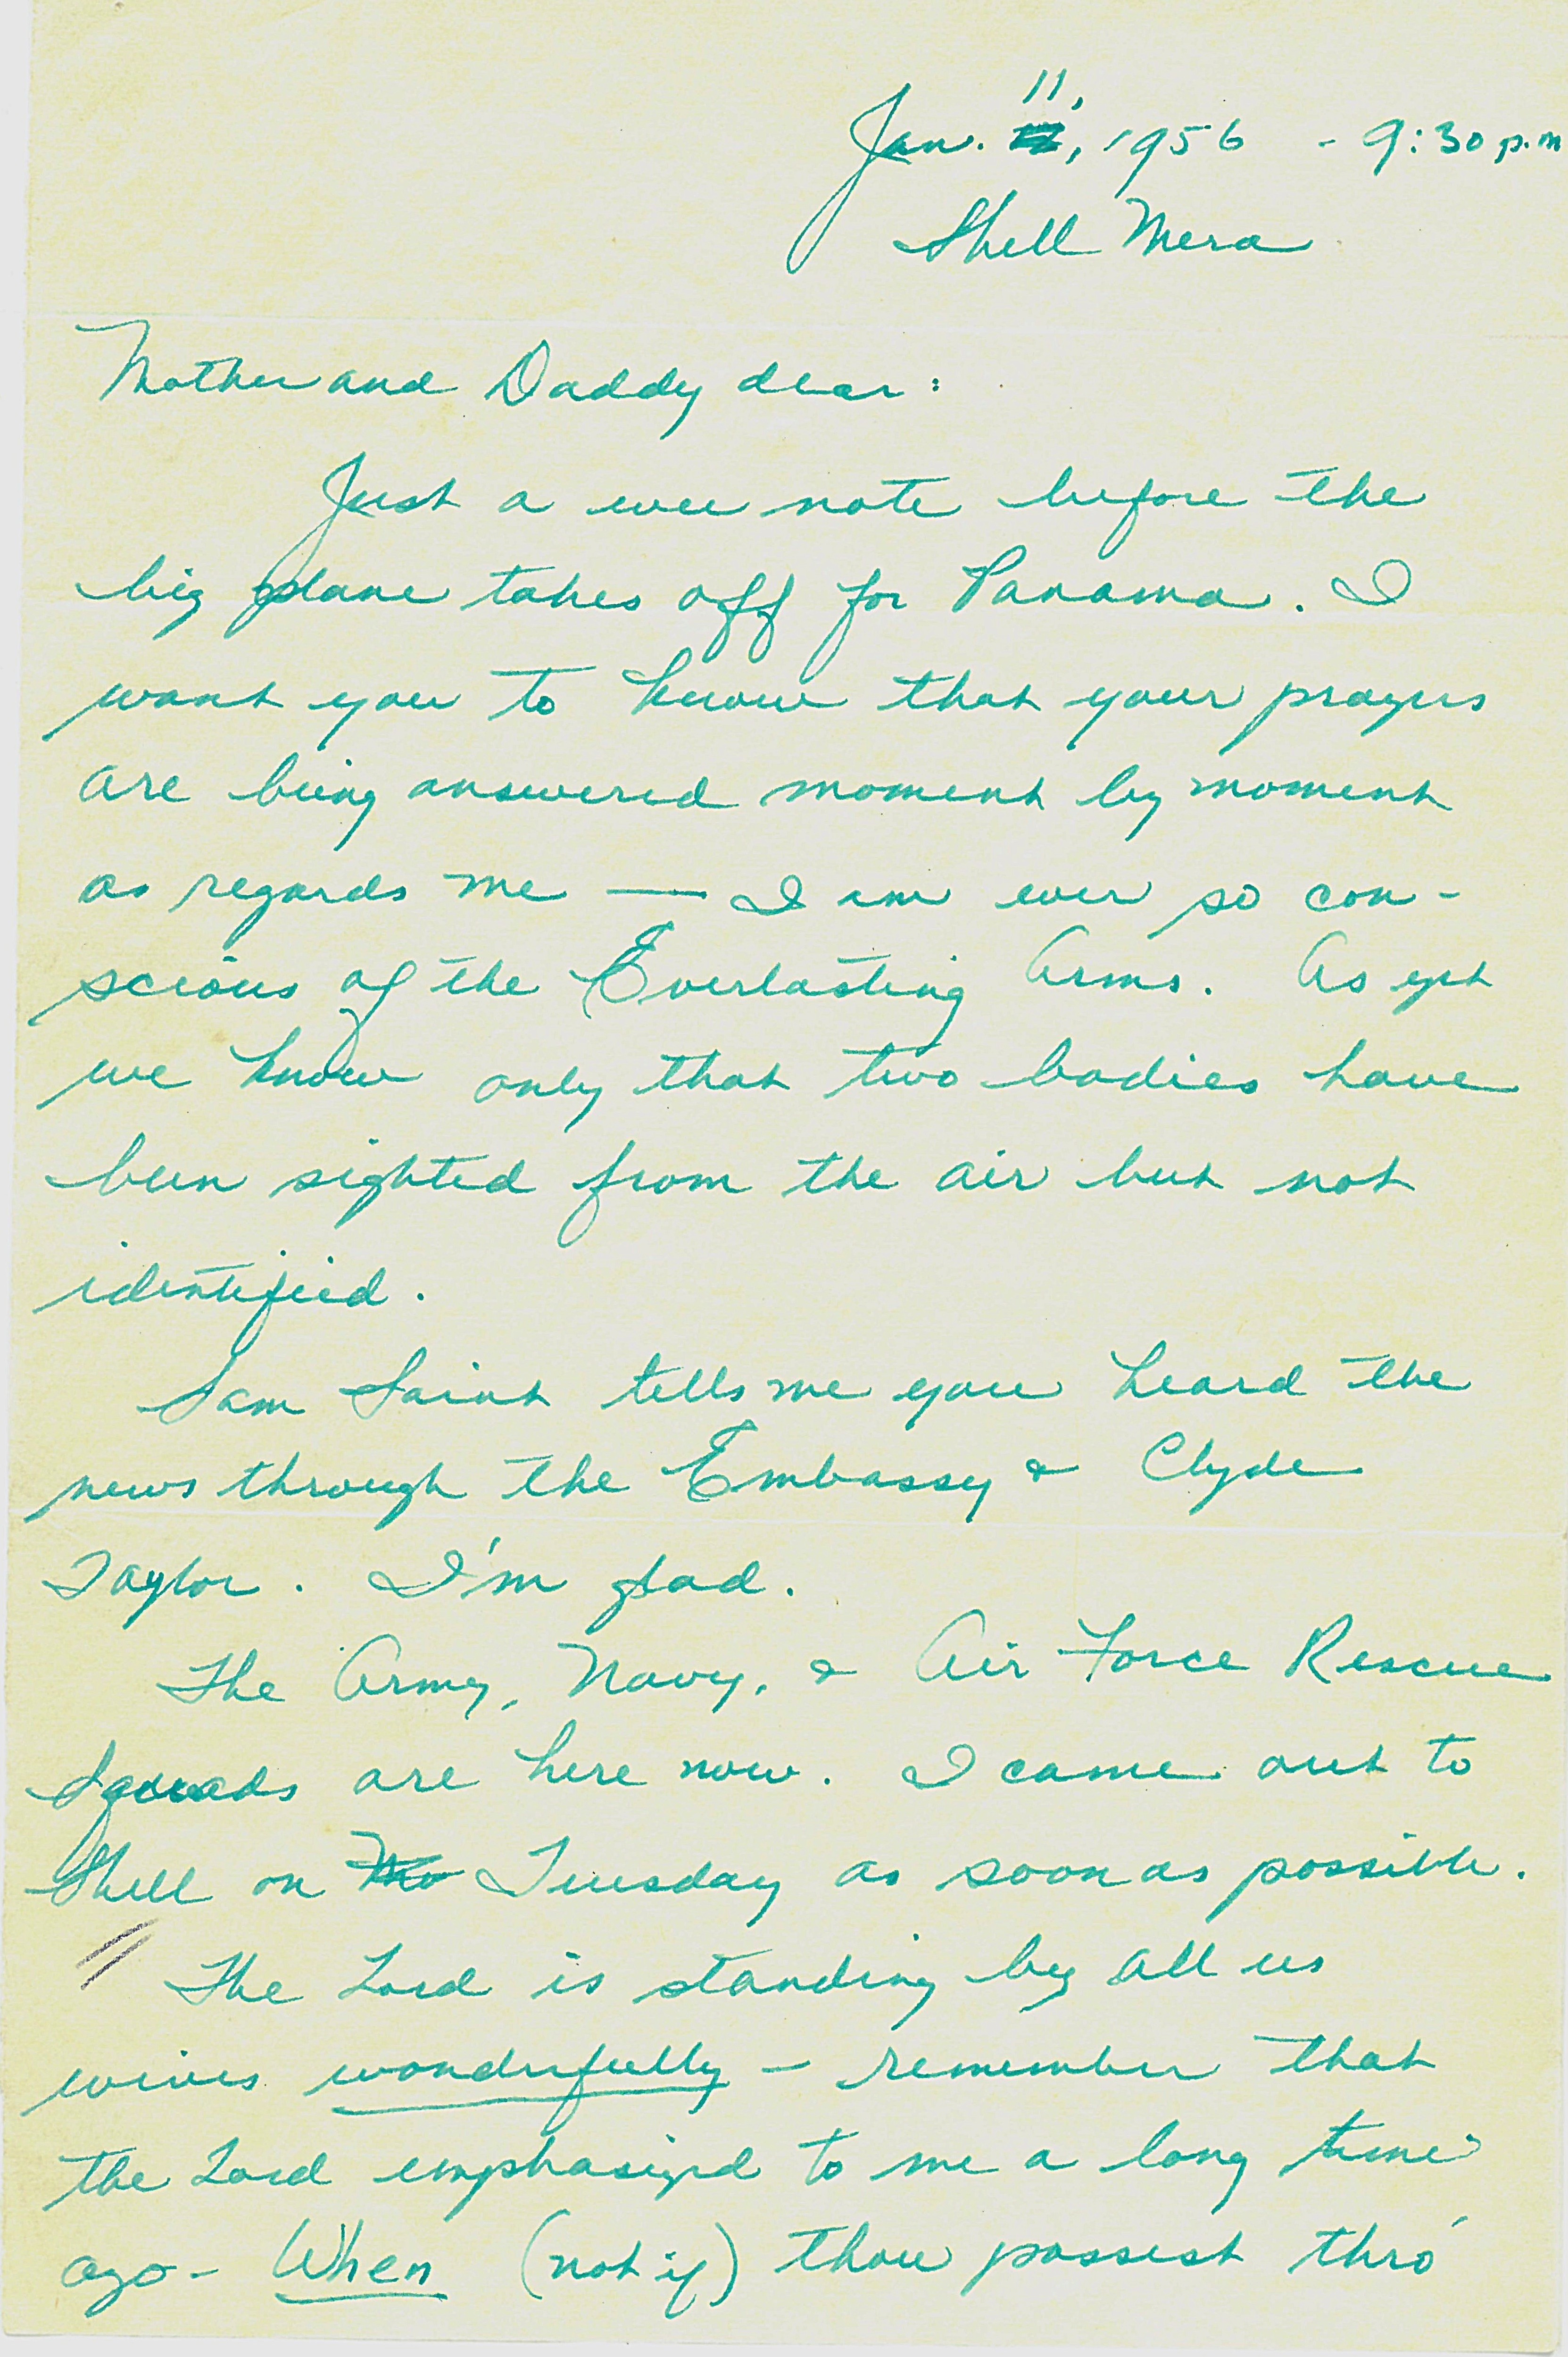 Jan. 11, 1956 - 9:30 p.m
Shell Mera
Mother and Daddy dear:
Just a wee note before the
big plane takes off for Panama. I
want you to know that your prayers
are being answered moment by moment
as regards me — I am ever so con-
scious of the Everlasting Arms. As yet
we know only that two bodies have
been sighted from the air but not
identified.
Sam Saint tells me you heard the
news through the Embassy & Clyde
Taylor. I'm glad.
The Army, Navy, & Air Force Rescue
Squads are here now. I came out to
Shell on Tuesday as soon as possible.
The Lord is standing by all us
wives wonderfully - remember that
the Lord emphasized to me a long time
ago - When (not if) thou passest thro'